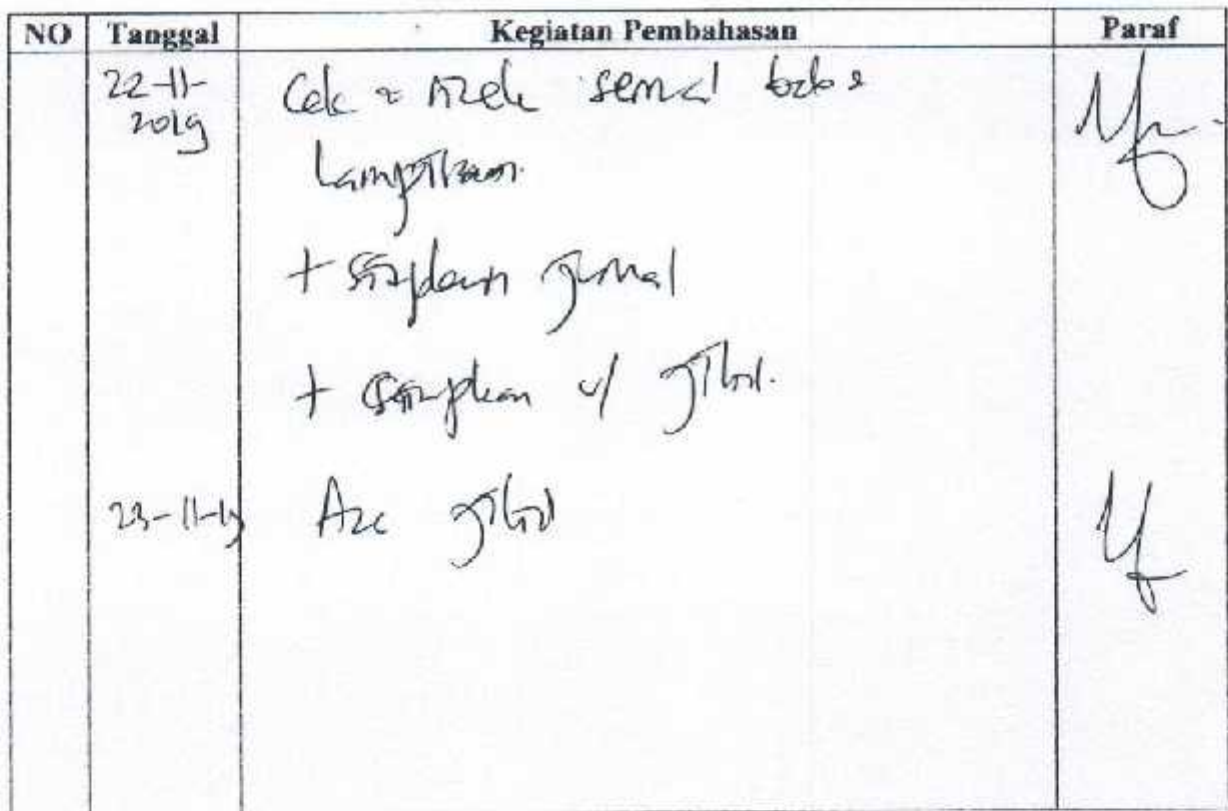 NO Tanggal Kegiatan Pembahasan Paraf
22-11-2019 Cek semua bab &
Lampiran
+ siapkan jurnal
+ siapkan u/ jilid.
23-11-19 Acc jilid